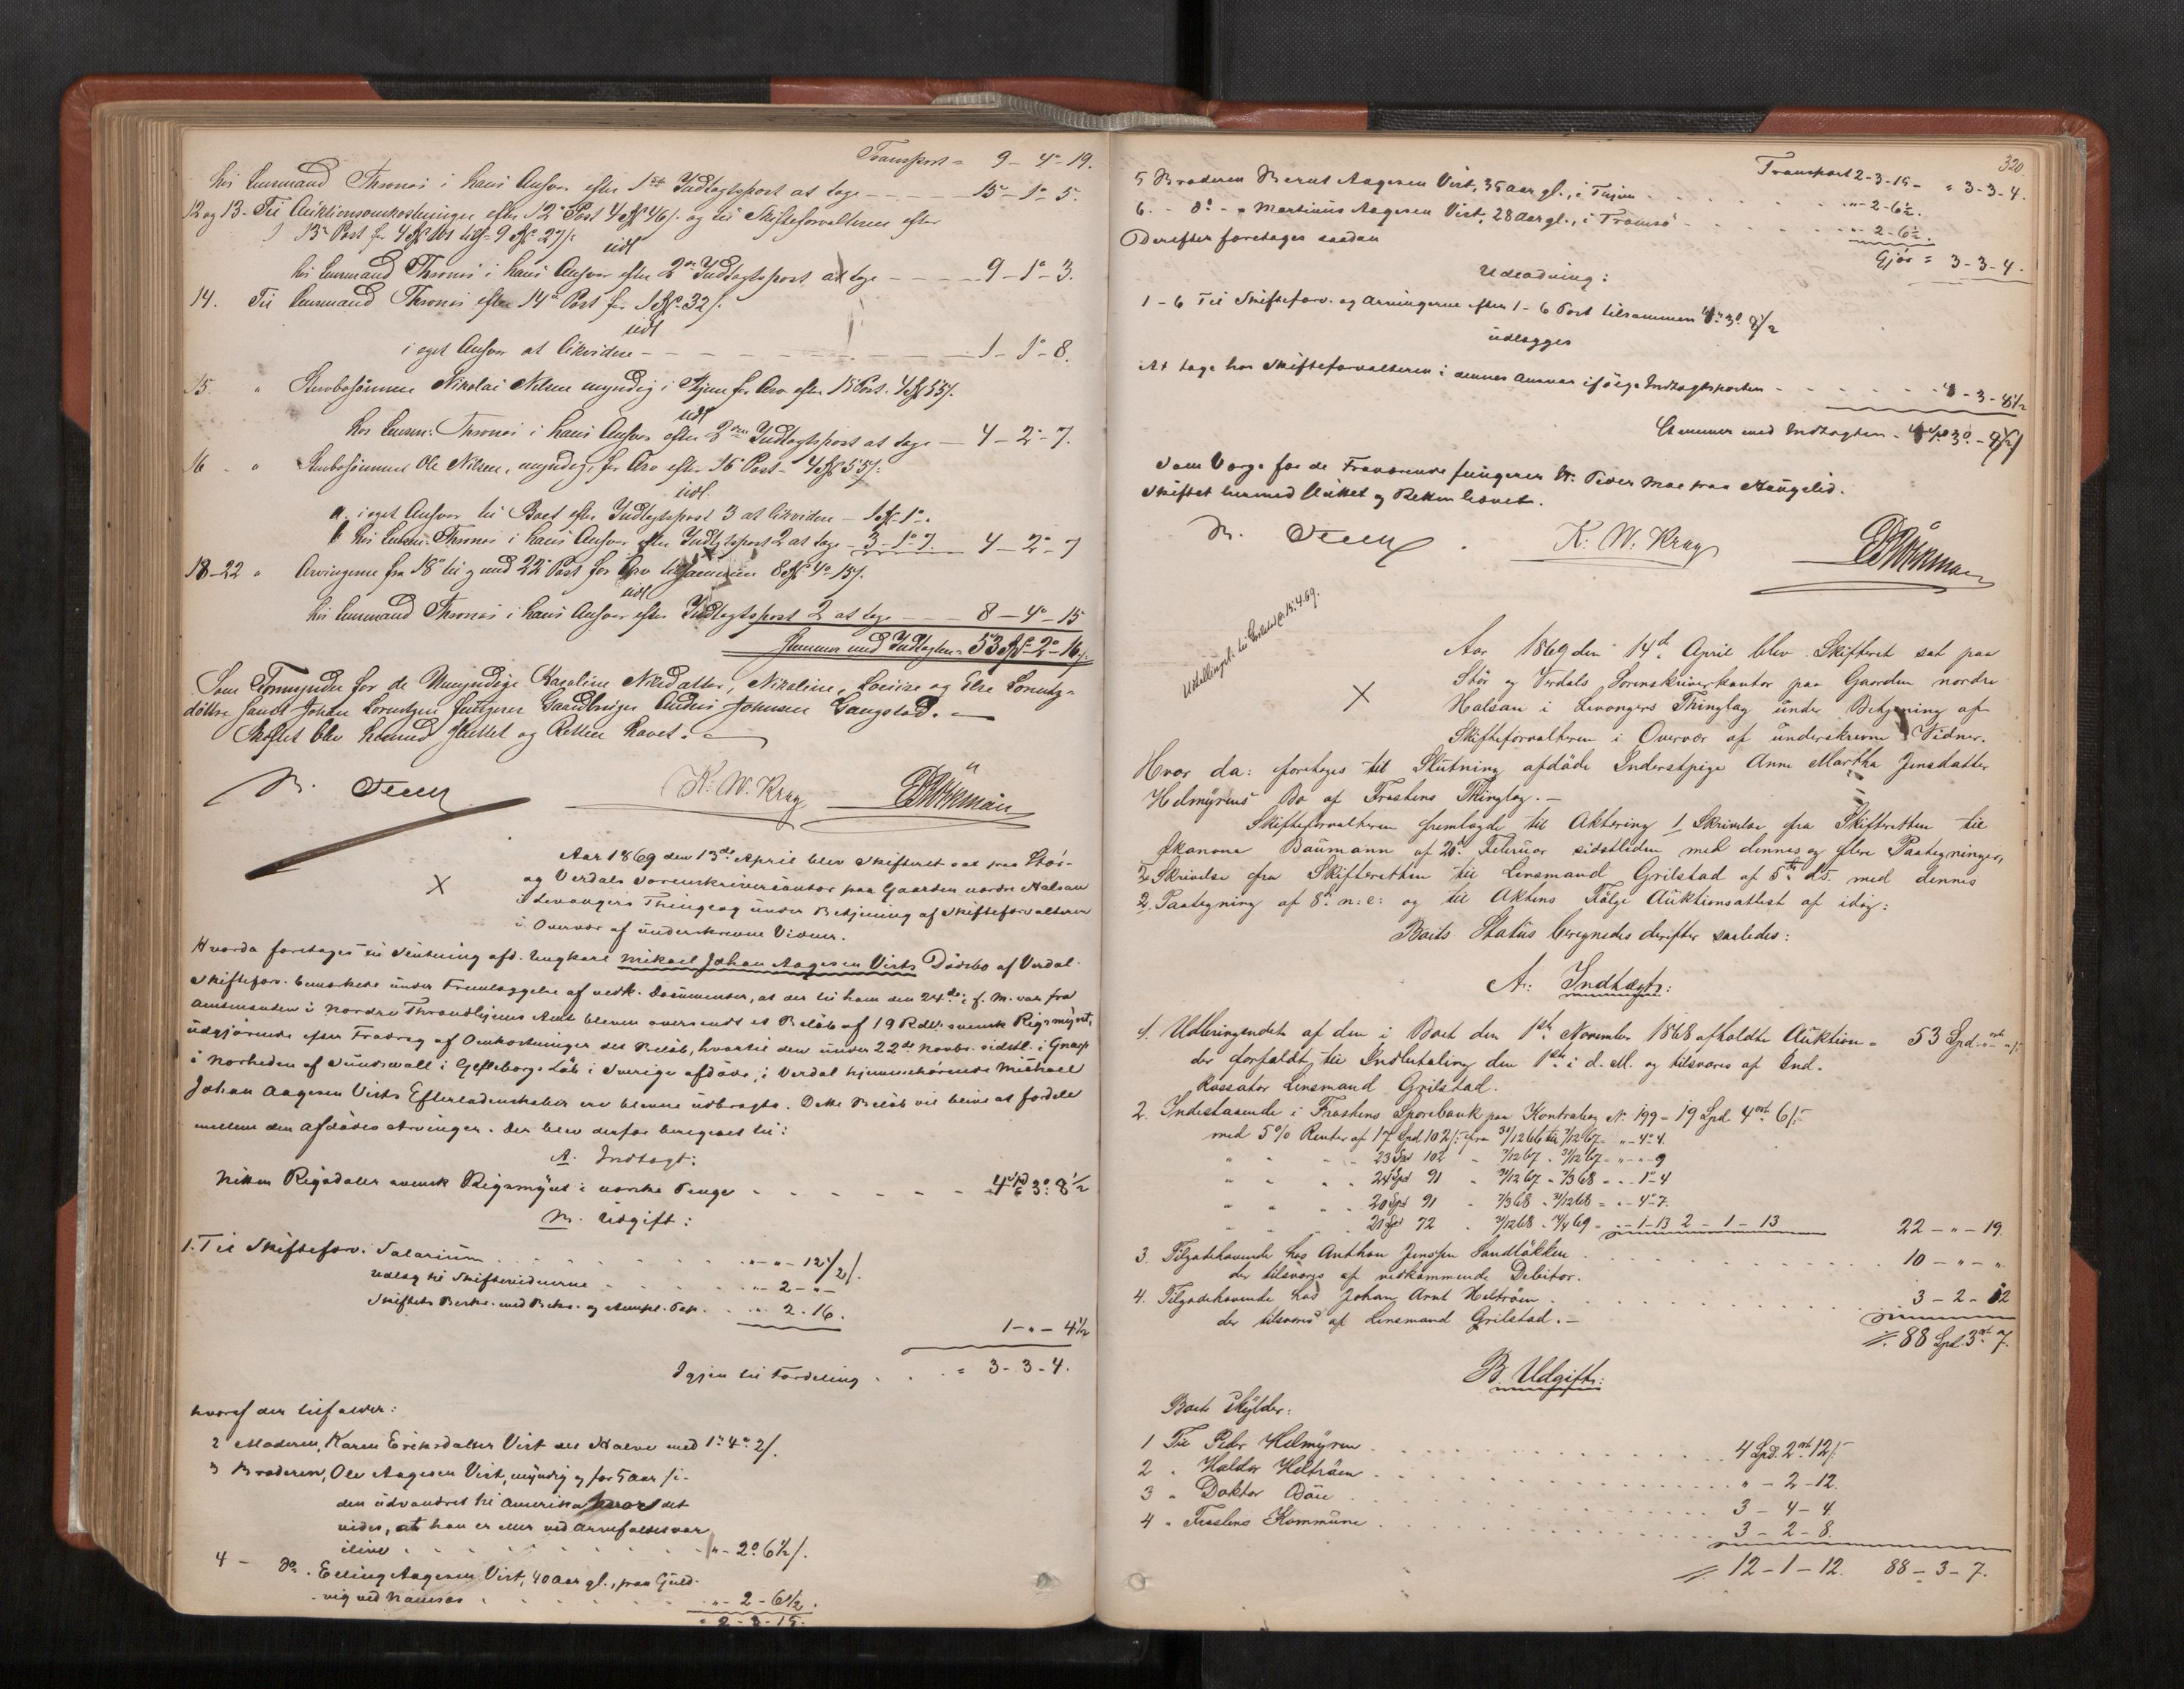 Transport = 9 - 4° - 19.
hos Lensmand Thrones i hans Ansvar efter 1ste Indtægtspost at tage - - - 15 - 1° - 5.
12 og 13. Til Auktionsomkostninger efter 12te Post 4 Spd 46/ og til Skifteforvalteren efter
13 Post for 4 Spd 101 tilsf. 9 Spd 27/:
udl
hos Lensmand Thrones i hans Ansvar efter 2den Indtægtspost at tage - - - 9 - 1° - 3.
14. Til Lensmand Thrones efter 14de Post for 1 Spd 32/.
udl
i eget Ansvar at likvidere - - - 1 - 1° - 8.
15. " Stervbosönnen Nikolai Nilsen myndig i for Arv efter 15 Post. 4 Spd 55/.
udl
hos Lensm: Thrones i hans Ansvar efter 2den Indtægtspost at tage - 4 - 2° - 7.
16 - " Stervbosönnen Ole Nilsen, myndig, for Arv efter 16 Post - 4 Spd 55/:
udl.
a. i eget Ansvar til Boet efter Indtægtspost 3 at likvidere - 1 Spd - 1° "
b hos Lensm: Thrones i hans Ansvar efter Indtægtspost 2 at tage - 3 - 1° 7. 4 - 2° - 7
18-22 " Arvingerne fra 18de til og med 22de Post for Arv tilsammen 8 Spd 4° 15/.
udl
hos Lensmand Thrones i hans Ansvar efter Indtægtspost 2 at tage - - - 8 - 4° - 15
Stemmer med Indtægten = 53 Spd - 2° - 16/.
Som Formynder for de Umyndige Karoline Nilsdatter, Nikoline, Lovise og Else Lorentz-
döttre samt Johan Lorentzen fungerer Gaardbruger Anders Johnsen Gangstad. -
Skiftet blev hermed sluttet og Retten hævet. -
M. K. W. Krag
X Aar 1869 den 13de April blev Skifteret sat paa Stör-
og Verdals Sorenskriverkontor paa Gaarden nordre Halsan
i Levangers Thinglag under Betjening af Skifteforvalteren
i Overvær af underskrevne Vidner.
Hvorda foretages til Slutning afd. Ungkarl Mikael Johan Aagesen Virts Dödsbo af Verdal.
Skifteforv. bemærkede under Fremlæggelse af vedk. Documenter, at der til ham den 24de f. M. var fra
Amtmanden i Nordre Throndhjems Amt bleven oversendt et Belöb af 19 Rdl. svensk Rigsmynt,
udgjörende efter Fradrag af Omkostninger det Belöb, hvortil den under 22de Novbr. sidstl. i Gnarp
i Nærheden af Sundsvall i Gefleborgs Län i Sverige afdöde, i Verdal hjemmehörende Michael
Johan Aagesen Virts Efterladenskaber ere blevne udbragte. Dette Belöb vil blive at fordele
mellem den Afdödes Arvinger. Der blev derfor beregnet til:
A. Indtægt:
Nitten Rigsdaler svensk Rigsmynt i norske Penge - - - 4 Spd 3° 8½
B. Udgift:
1. Til Skifteforv. Salarium . . . " - " - 12½/.
Udlæg til Skiftevidnerne - - - " - 2 - "
Skiftets Berkt. med Beks. og stempl. Pap. . . " 2. 16.
1 - " - 4½
Igjen til Fordeling . . . = 3 - 3 - 4.
Hvoraf der tilfalder:
2 Moderen, Karen Eriksdatter Virt det Halve med 1 " 4 " 2/.
3 Broderen, Ole Aagesen Virt, myndig og for 5 Aar si-
den udvandret til Amerika hvor det
vides, at han er eller ved Arvefaldet var
ilive . . . " - 2° 6½/.
4 - do . Elling Aagesen Virt, 40 Aar gl., paa Guld-
vig ved Namsos . . . " - 2 - 6½.
= 2 - 3 - 15.
320.
Transport 2 - 3 - 15 - " 3 - 3 - 4.
5 Broderen Bernt Aagesen Virt, 35 Aar gl., i . . . " - 2 - 6½.
6. - do - " Martinus Aagesen Virt, 28 Aar gl., i Tromsö - . . . " - 2 - 6½.
Gjör = 3 - 3 - 4.
Derefter foretages saadan
Udlodning:
1 - 6 Til Skifteforv. og Arvingerne efter 1 - 6 Post tilsammen 4 " 3° 8½
udlægges
At tage hos Skifteforvalteren i dennes Ansvar ifölge Indtægtsposten - - - 4 - 3 - 8½
Stemmer med Indtægten - 4 Spd 3° - 8½/
Som Værge for de Fraværende fungerer Hr. Peder Moe paa Haugslid.
Skiftet hermed sluttet og Retten hævet.
M. K. W. Krag
X Aar 1869 den 14de April blev Skifteret sat paa
Stör og Verdals Sorenskriverkontor paa Gaarden nordre
Halsan i Levangers Thinglag under Betjening af
Skifteforvalteren i Overvær af underskrevne Vidner.
Hvor da: foretages til Slutning afdöde Inderstpige Anne Martha Jensdatter
Helmyrens Bo af Frostens Thinglag. -
Skifteforvalteren fremlagde til Aktering 1 Skrivelse fra Skifteretten til
Ekonom Baumann af 20de Februar sidstleden med dennes og flere Paategninger,
2. Skrivelse fra Skifteretten til Lensmand Grilstad af 5te ds. med dennes
2. Paategning af 8de n: e: og til Aktens Fölge Auktionsattest af idag:
Boets Status beregnedes derefter saaledes:
A: Indtægt:
1. Udbringendet af den i Boet den 1ste November 1868 afholdte Auktion = 53 Spd - " ort - " /:
der forfaldt til Indbetaling den 1ste i d. M. og tilsvares af Ind-
kassator Lensmand Grilstad.
2. Indestaaende i Frostens Sparebank paa Kontrabog No 199 = 19 Spd 4 ort 6/:
med 5% Renter af 17 Spd 102/: fra 31/12 66 til 7/12 67 = " - 4 - 4.
" " " - 23 Spd 102 - 7/12 67 - 31/12 67 = " - " - 9
" " " - 24 Spd 91 - 31/12 67 - 7/3 68 = " - 1 - 4
" " " - 20 Spd 91 - 7/3 68 - 31/12 68 = " - 4 - 7.
" " - 21 Spd 72 - 31/12 68 - 14/4 69 - " - 1 - 13 2 - 1 - 13 22 - " - 19.
3. Tilgodehavende hos Anthon Jenssen Sandlökken . . . 10 - " - "
der tilsvares af vedkommende Debitor.
4. Tilgodehavende hos Johan Arnt Helströen . . . 3 - 2 - 12
der tilsvares af Lensmand Grilstad. -
= 88 Spd. 3 ort 7.
B. Udgift:
Boets Skylder:
1 Til Peder Helmyren . . . 4 Spd. 2 ort 12/:
2 " Haldor Helströen . . . " - 2 - 12.
3 " Doktor Dau . . . 3 - 4 - 4.
4 " Frostens Kommune . . . 3 - 2 - 8.
= 12 - 1 - 12. 88 - 3 - 7.